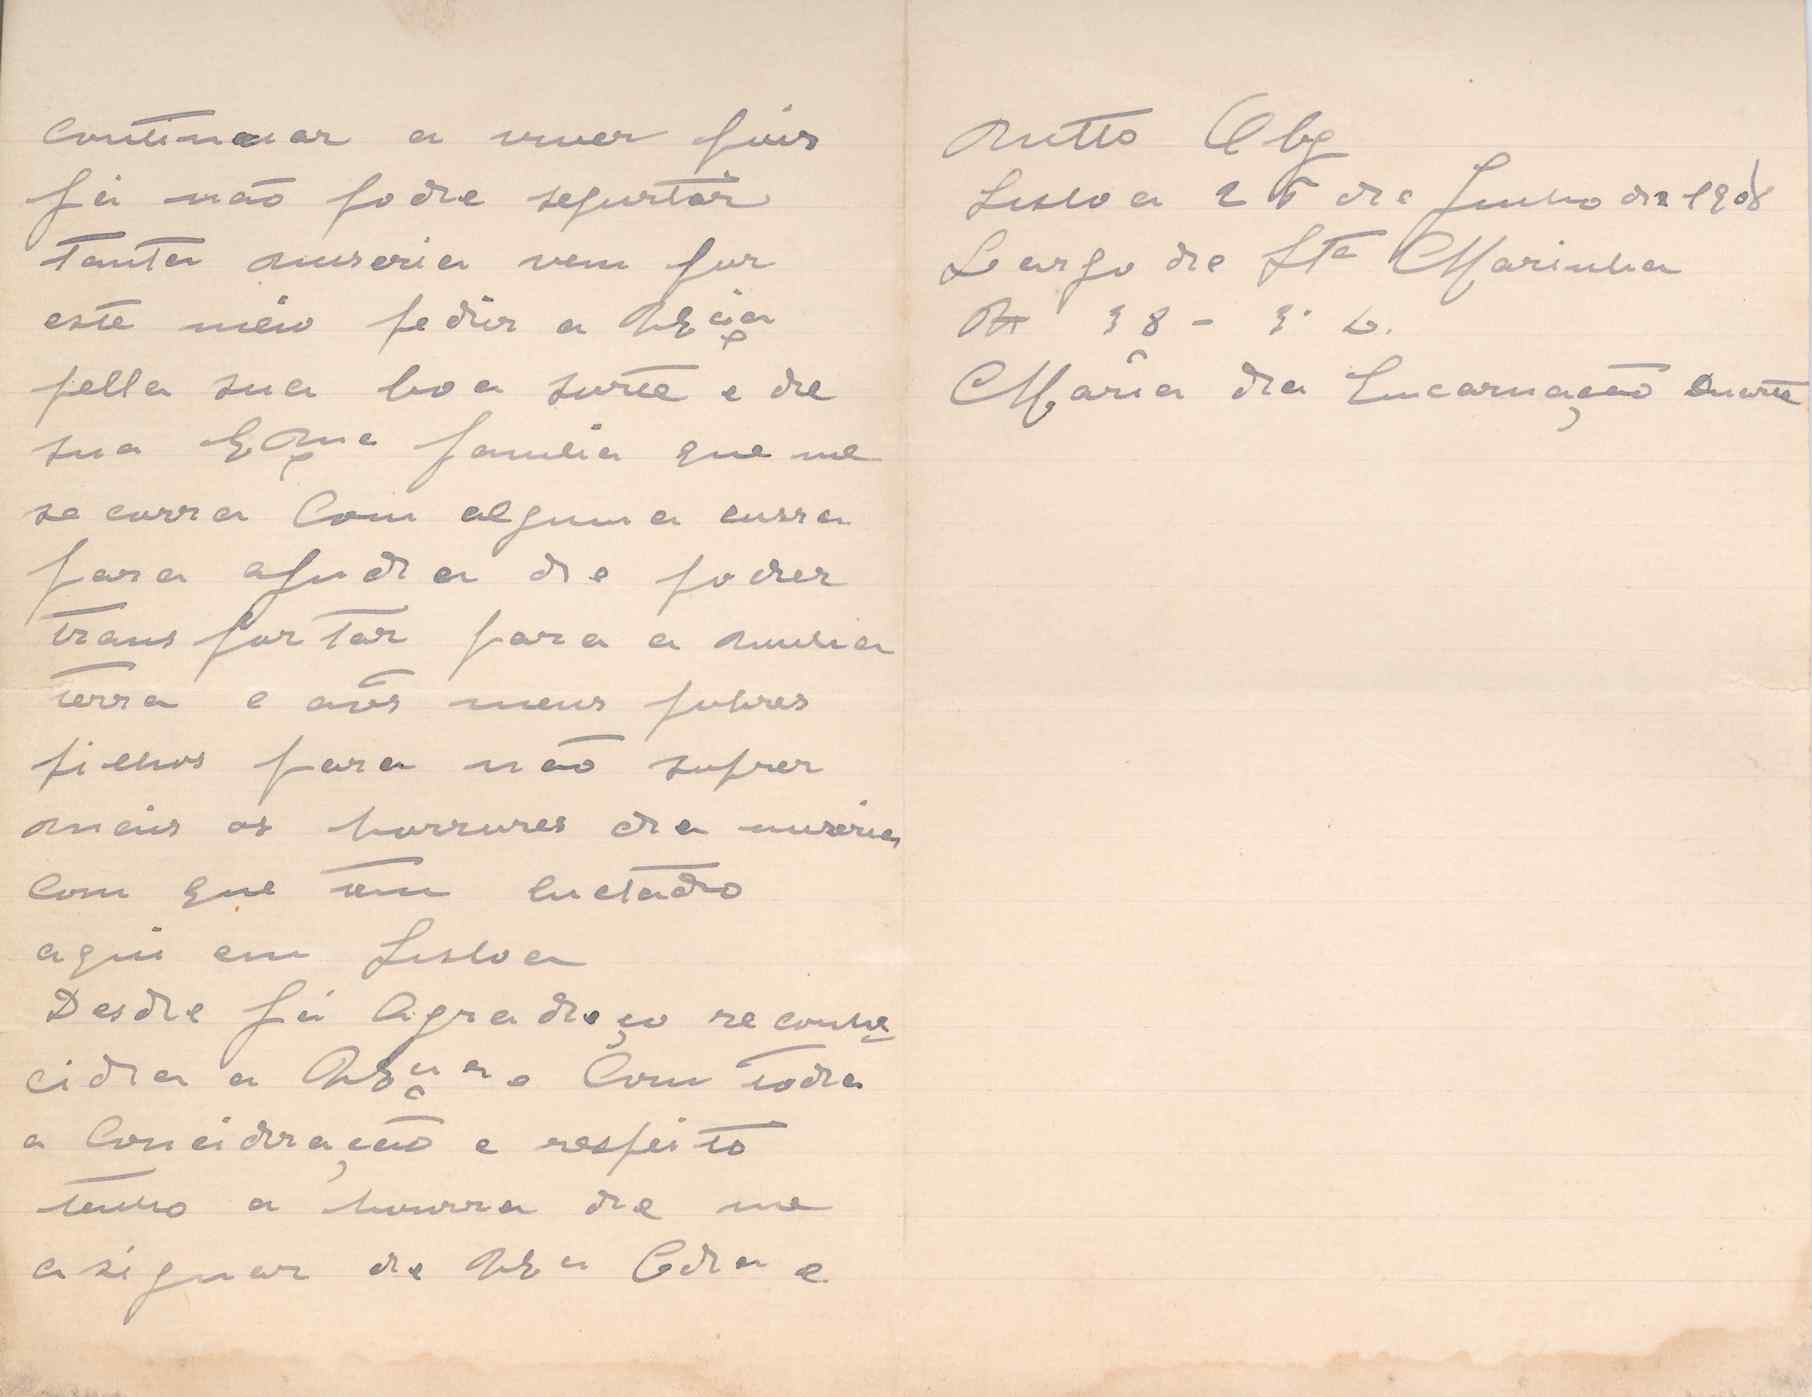 continuar a viver pois
já não pode sepurtar
tanta miseria vem pur
este meio pedir a V Ex.cia
pella sua boa surte e de
sua Ex.ma familia que me
secorra com alguma cuisa
para ajuda de poder
transpurtar para a minha
terra e aõs meus pobres
filhos para não sufrer
mais os horrures da miséria
com que tem luctado
aqui em Lisboa
Desde já Agradeço reconhe
cida a V Ex.a e Com toda
a Concideração e respeito
tenho a honrra de me
asignar de V Ex.a Cda e
Mtto Obg
Lisboa 25 de Junho de 1908
Largo de Sta Marinha
38 - 3.º D.
Maria da Encarnação Duarte